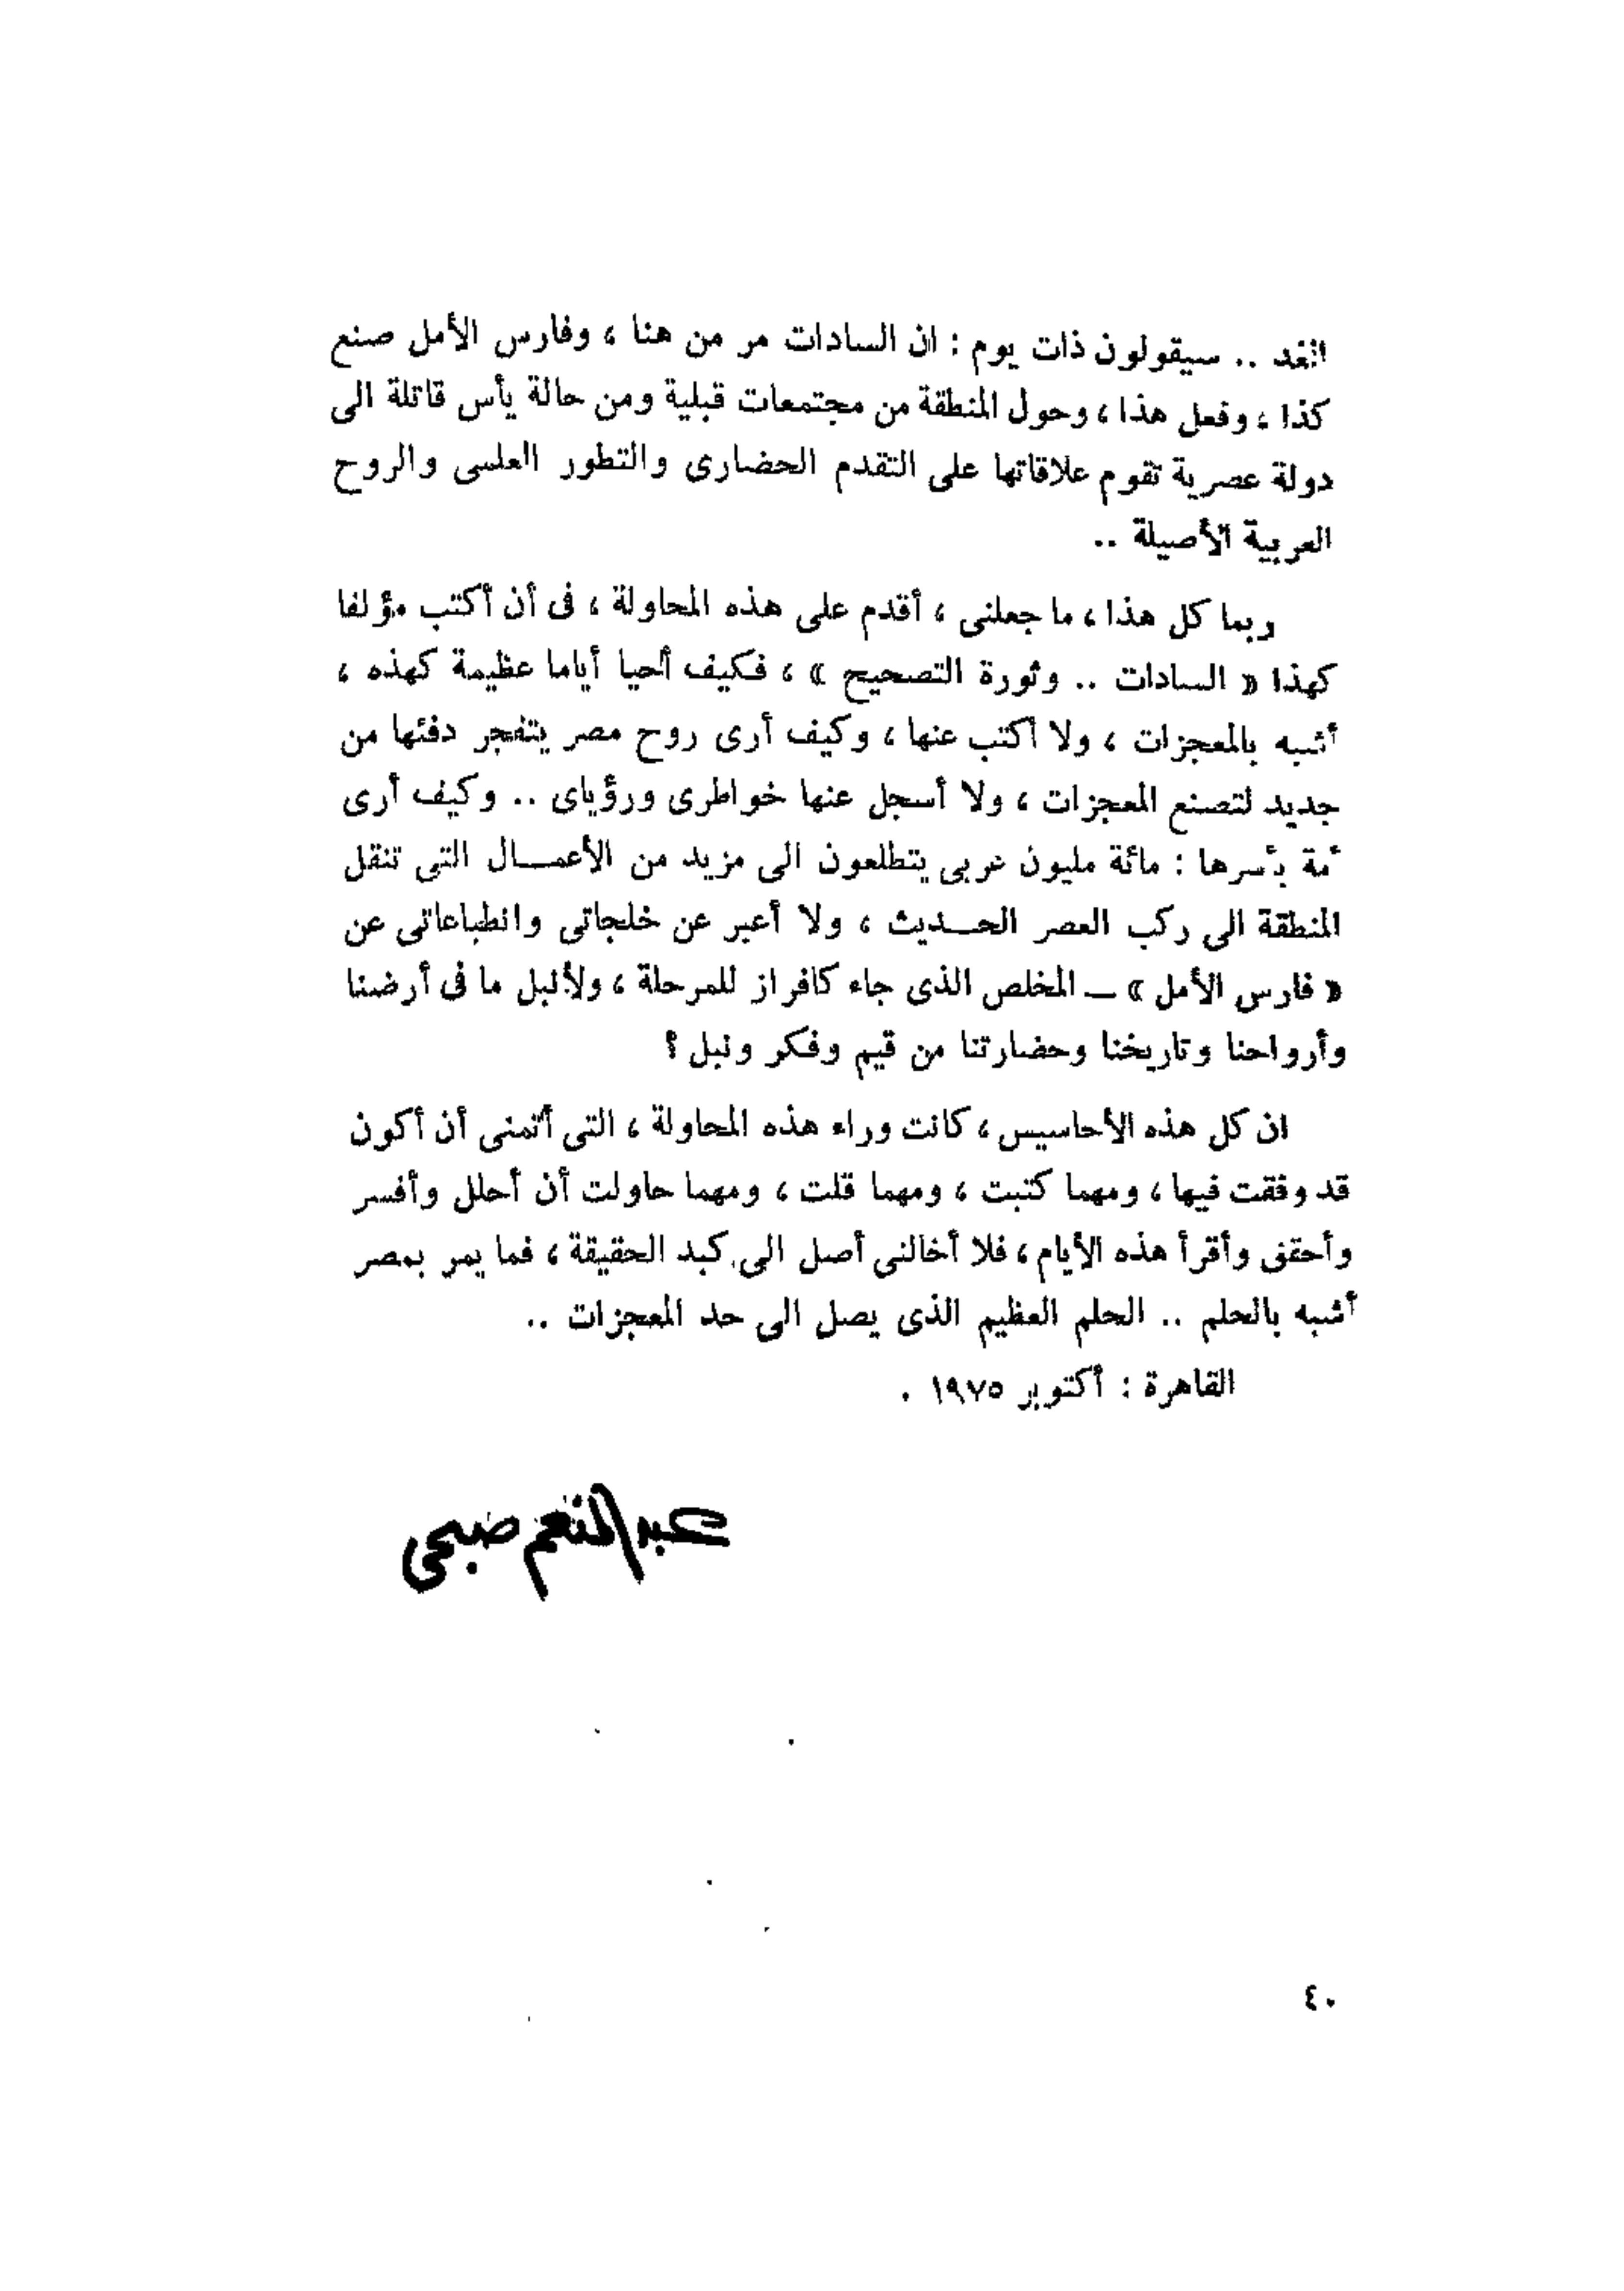 الغد .. سيقولون ذات يوم : ان السادات مر من هنا ، وفارس الأمل صنع
كذا ، وفعل هذا ، وحول المنطقة من مجتمعات قبلية ومن حالة يأس قاتلة الى
دولة عصرية تقوم علاقاتها على التقدم الحضارى والتطور العلمى والروح
العربية الأصيلة ..
ربما كل هذا ، ما جعلنى ، أقدم على هذه المحاولة ، فى أن أكتب مؤلفا
كهذا « السادات .. وثورة التصحيح » ، فكيف أحيا أياما عظيمة كهذه ،
أشبه بالمعجزات ، ولا أكتب عنها ، وكيف أرى روح مصر يتفجر دفئها من
جديد لتصنع المعجزات ، ولا أسجل عنها خواطرى ورؤياى .. وكيف أرى
أمة بأسرها : مائة مليون عربى يتطلعون الى مزيد من الأعمــال التى تنقل
المنطقة الى ركب العصر الحــديث ، ولا أعبر عن خلجاتى وانطباعاتى عن
« فارس الأمل » ــ المخلص الذى جاء كافراز للمرحلة ، ولأنبل ما فى أرضنا
وأرواحنا وتاريخنا وحضارتنا من قيم وفكر ونبل ؟
ان كل هذه الأحاسيس ، كانت وراء هذه المحاولة ، التى أتمنى أن أكون
قد وفقت فيها ، ومهما كتبت ، ومهما قلت ، ومهما حاولت أن أحلل وأفسر
وأحقق وأقرأ هذه الأيام ، فلا أخالنى أصل الى كبد الحقيقة ، فما يمر بمصر
أشبه بالحلم .. الحلم العظيم الذى يصل الى حد المعجزات ..
القاهرة : أكتوبر ١٩٧٥ .
عبد المنعم صبحى
٤٠